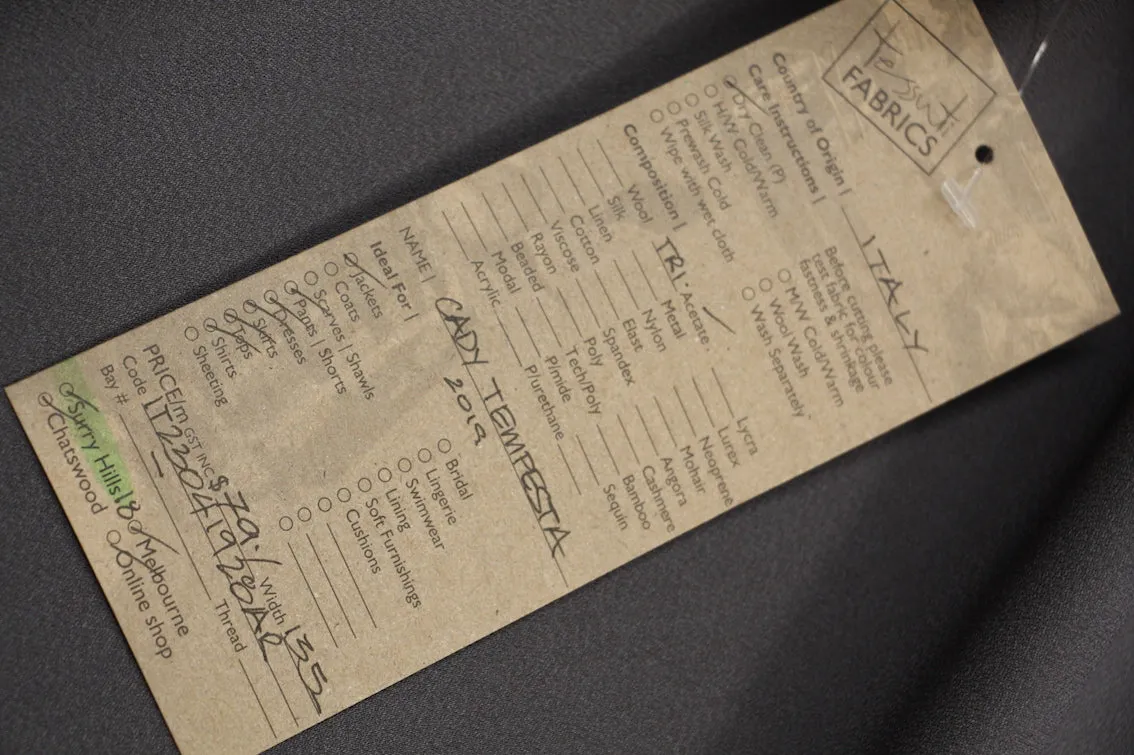 tessuti
FABRICS
Country of Origin | ITALY
Care Instructions |
Dry Clean (P)
H/W Cold/Warm
Silk Wash
Prewash Cold
Wipe with wet cloth
Before cutting please
test fabric for colour
fastness & shrinkage
M/W Cold/Warm
Wool Wash
Wash Separately
Composition |
Wool
Silk
Linen
Cotton
Viscose
Rayon
Beaded
Modal
Acrylic
TRI. Acetate
Metal
Nylon
Elast
Spandex
Poly
Tech/Poly
P/mide
P/urethane
Lycra
Lurex
Neoprene
Mohair
Angora
Cashmere
Bamboo
Sequin
NAME | CADY TEMPESTA
2019
Ideal For |
Jackets
Coats
Scarves | Shawls
Pants | Shorts
Dresses
Skirts
Tops
Shirts
Sheeting
Bridal
Lingerie
Swimwear
Lining
Soft Furnishings
Cushions
PRICE/m GST INC $79.- Width 135
Code
Bay # Thread
Surry Hills 18 Melbourne
Chatswood Online shop